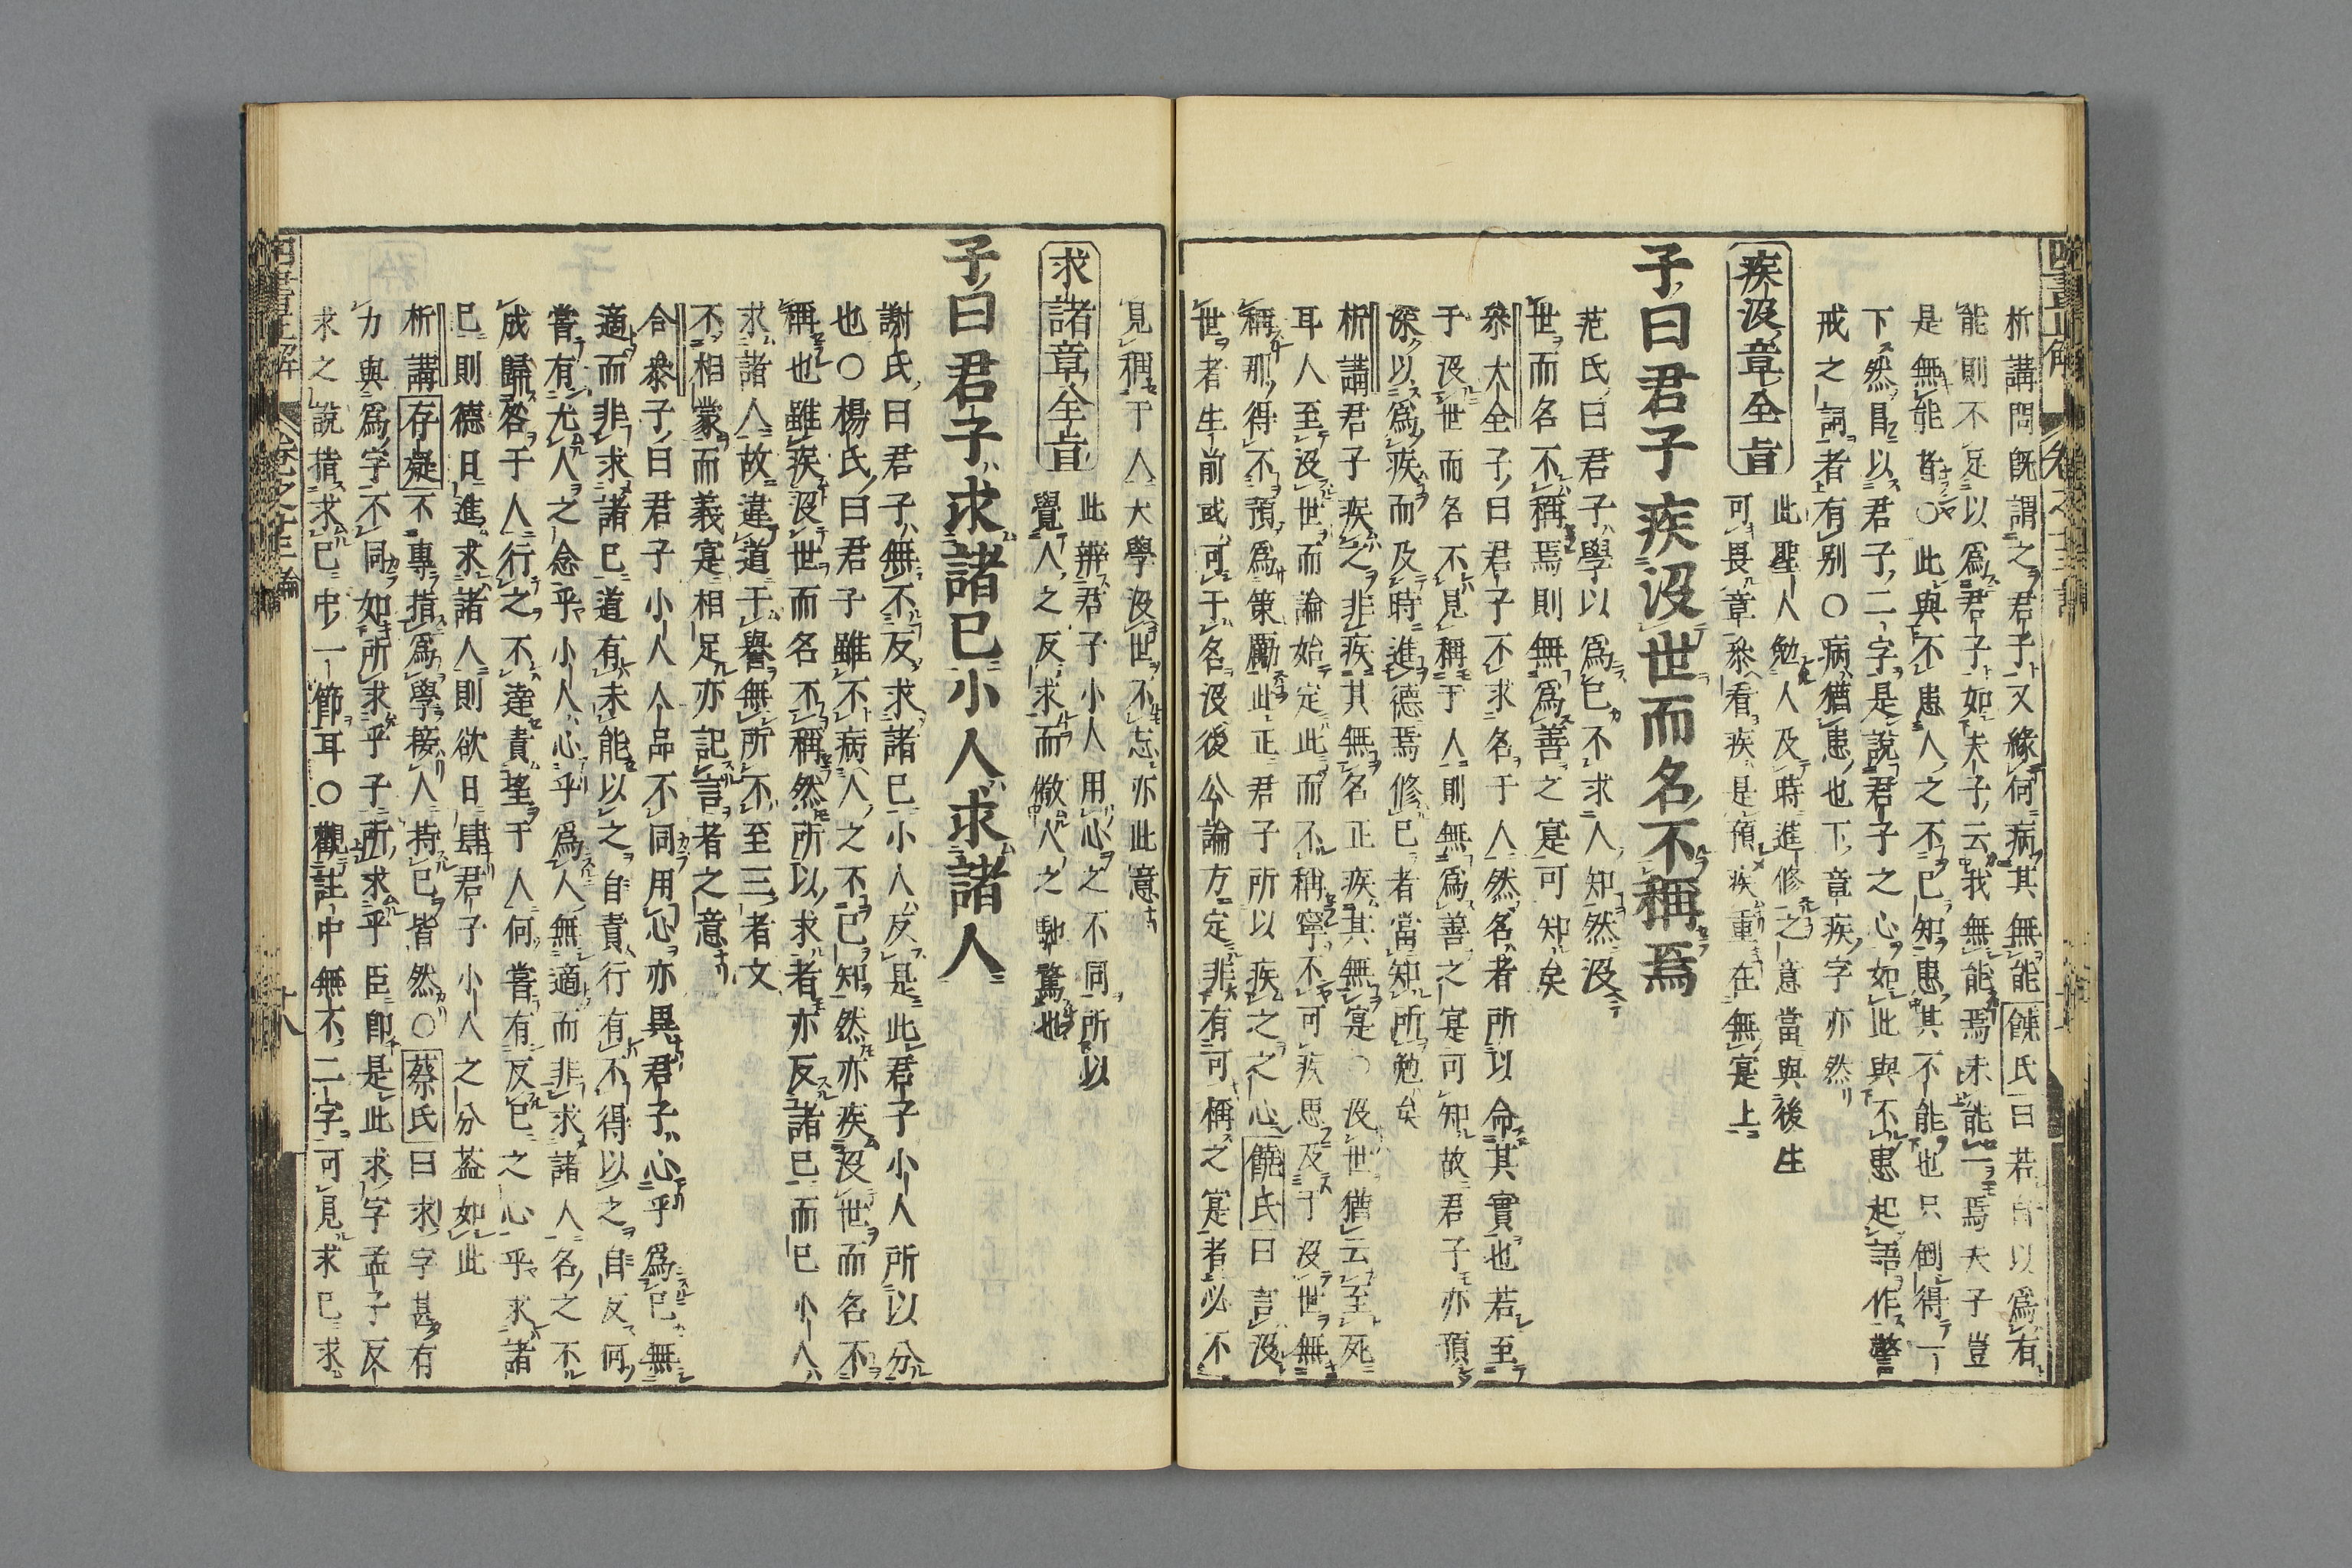 析講問既謂之君子又緣何病其無能饒氏曰若自以爲有
能則不足以爲君子如夫子云我無能焉未能一焉夫子豈
是無能者○此與不患人之不己知患其不能也只倒得一
下然自以君子二字是說君子之心如此與不患起語作警
戒之詞者有別○病猶患也下章疾字亦然
疾沒章全旨
此聖人勉人及時進修之意當與後生
可畏章參看疾是預疾重在無寔上
子曰君子疾沒世而名不稱焉
范氏曰君子學以爲己不求人知然沒
世而名不稱焉則無爲善之寔可知矣
參大全子曰君子不求名于人然名者所以命其實也若至
于沒世而名不見稱于人則無爲善之寔可知故君子亦預
深以爲疾而及時進德焉修己者當知所勉矣
析講君子疾之非疾其無名正疾其無寔○沒世猶云至死
耳人至沒世而論始定此而不稱寧不可疾思及于沒世無
稱那得不預爲策勵此正君子所以疾之之心饒氏曰言沒
世者生前或可于名沒後公論方定非有可稱之寔者必不
見稱于人大學沒世不忘亦此意
求諸章全旨
此辨君子小人用心之不同所以
覺人之反求而儆人之馳騖也
子曰君子求諸己小人求諸人
謝氏曰君子無不反求諸己小人反是此君子小人所以分
也○楊氏曰君子雖不病人之不己知然亦疾沒世而名不
稱也雖疾沒世而名不稱然所以求者亦反諸己而已小人
求諸人故違道于譽無所不至三者文
不相蒙而義寔相足亦記言者之意
合參子曰君子小人人品不同用心亦異君子心乎爲己無
適而非求諸己道有未能以之自責行有不得以之自反何
嘗有尤人之念乎小人心乎爲人無適而非求諸人名之不
成歸咎于人行之不達責望于人何嘗有反己之心乎求諸
己則德日進求諸人則欲日肆君子小人之分葢如此
析講存疑不專指爲學接人持己皆然○蔡氏曰求字甚有
力與爲字不同如所求乎子所求乎臣卽是此求字孟子反
求之說指求己中一節耳○觀註中無不二字可見求己求
四書正解
卷之十三論
十八